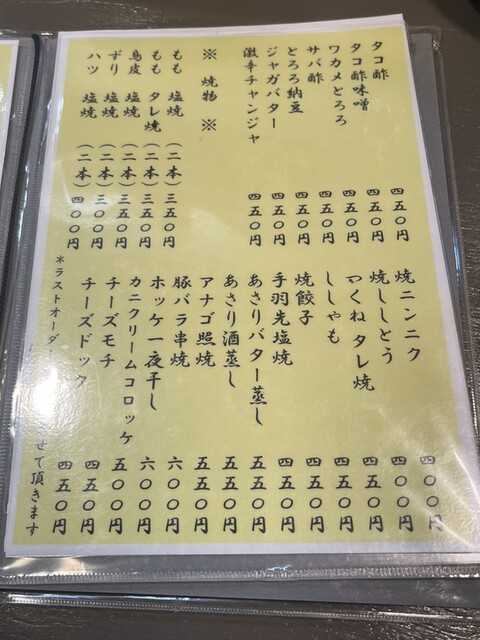 タコ酢 四五〇円
タコ酢味噌 四五〇円
ワカメとろろ 四五〇円
サバ酢 四五〇円
とろろ納豆 四五〇円
ジャガバター 四五〇円
激辛チャンジャ 四五〇円
※ 焼物 ※
もも 塩焼 (二本) 三五〇円
もも タレ焼 (二本) 三五〇円
鳥皮 塩焼 (二本) 三五〇円
ずり 塩焼 (二本) 三〇〇円
ハツ 塩焼 (二本) 四〇〇円
焼ニンニク 四〇〇円
焼ししとう 四〇〇円
つくね タレ焼 四五〇円
ししゃも 四五〇円
焼餃子 四五〇円
手羽先塩焼 四五〇円
あさりバター蒸し 五五〇円
あさり酒蒸し 五五〇円
アナゴ照焼 五五〇円
豚バラ串焼 六〇〇円
ホッケ一夜干し 六〇〇円
カニクリームコロッケ 五〇〇円
チーズモチ 四五〇円
チーズドック 四五〇円
*ラストオーダー せて頂きます